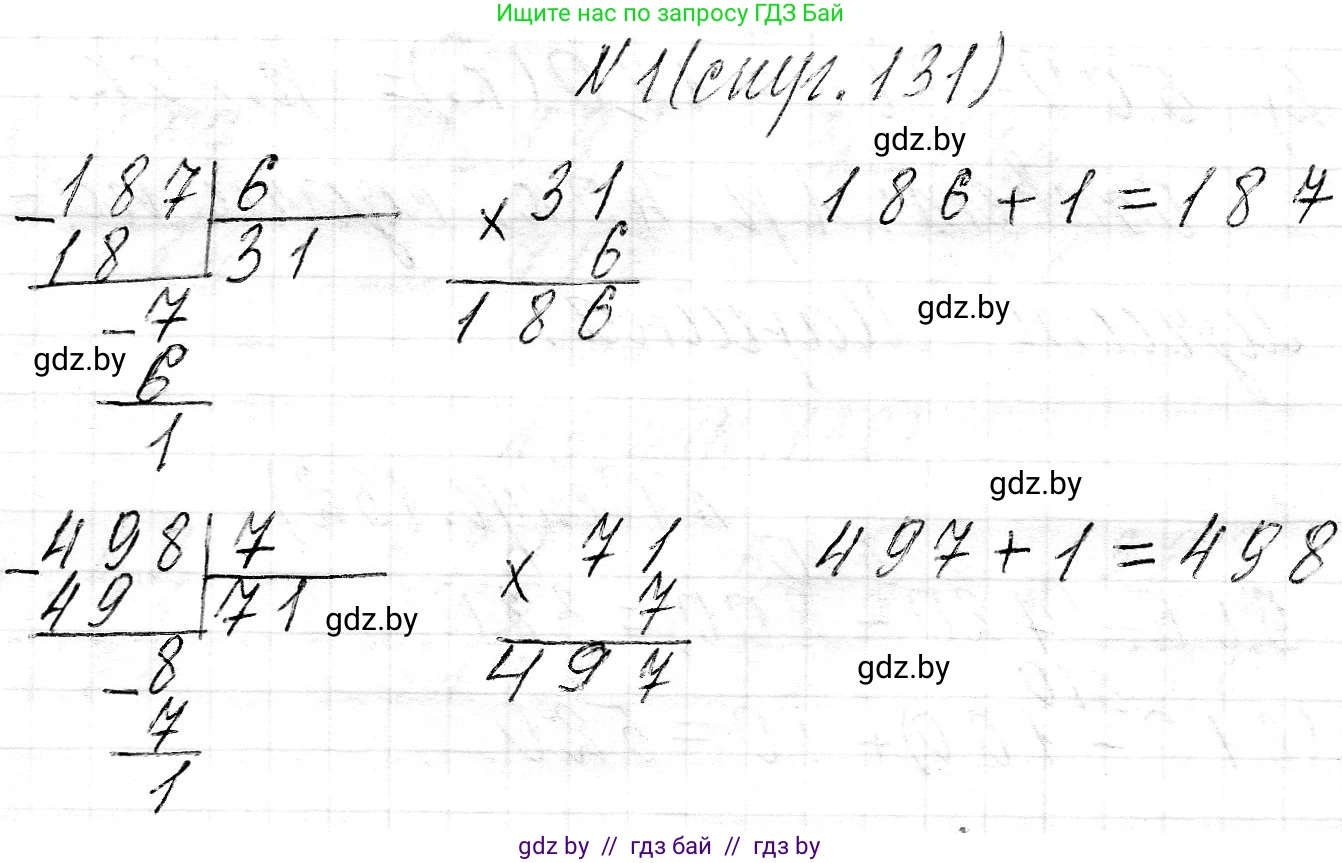 Ищите нас по запросу ГДЗ Бай
№1(стр. 131)
gdz.by
187 6 31 186+1=187
- 18 31 × 6
186
gdz.by
-7
gdz.by
6
1
gdz.by
498 7 71 497+1=498
- 49 71 × 7
gdz.by
497
gdz.by
-8
7
1
gdz by // гдз бай // гдз by